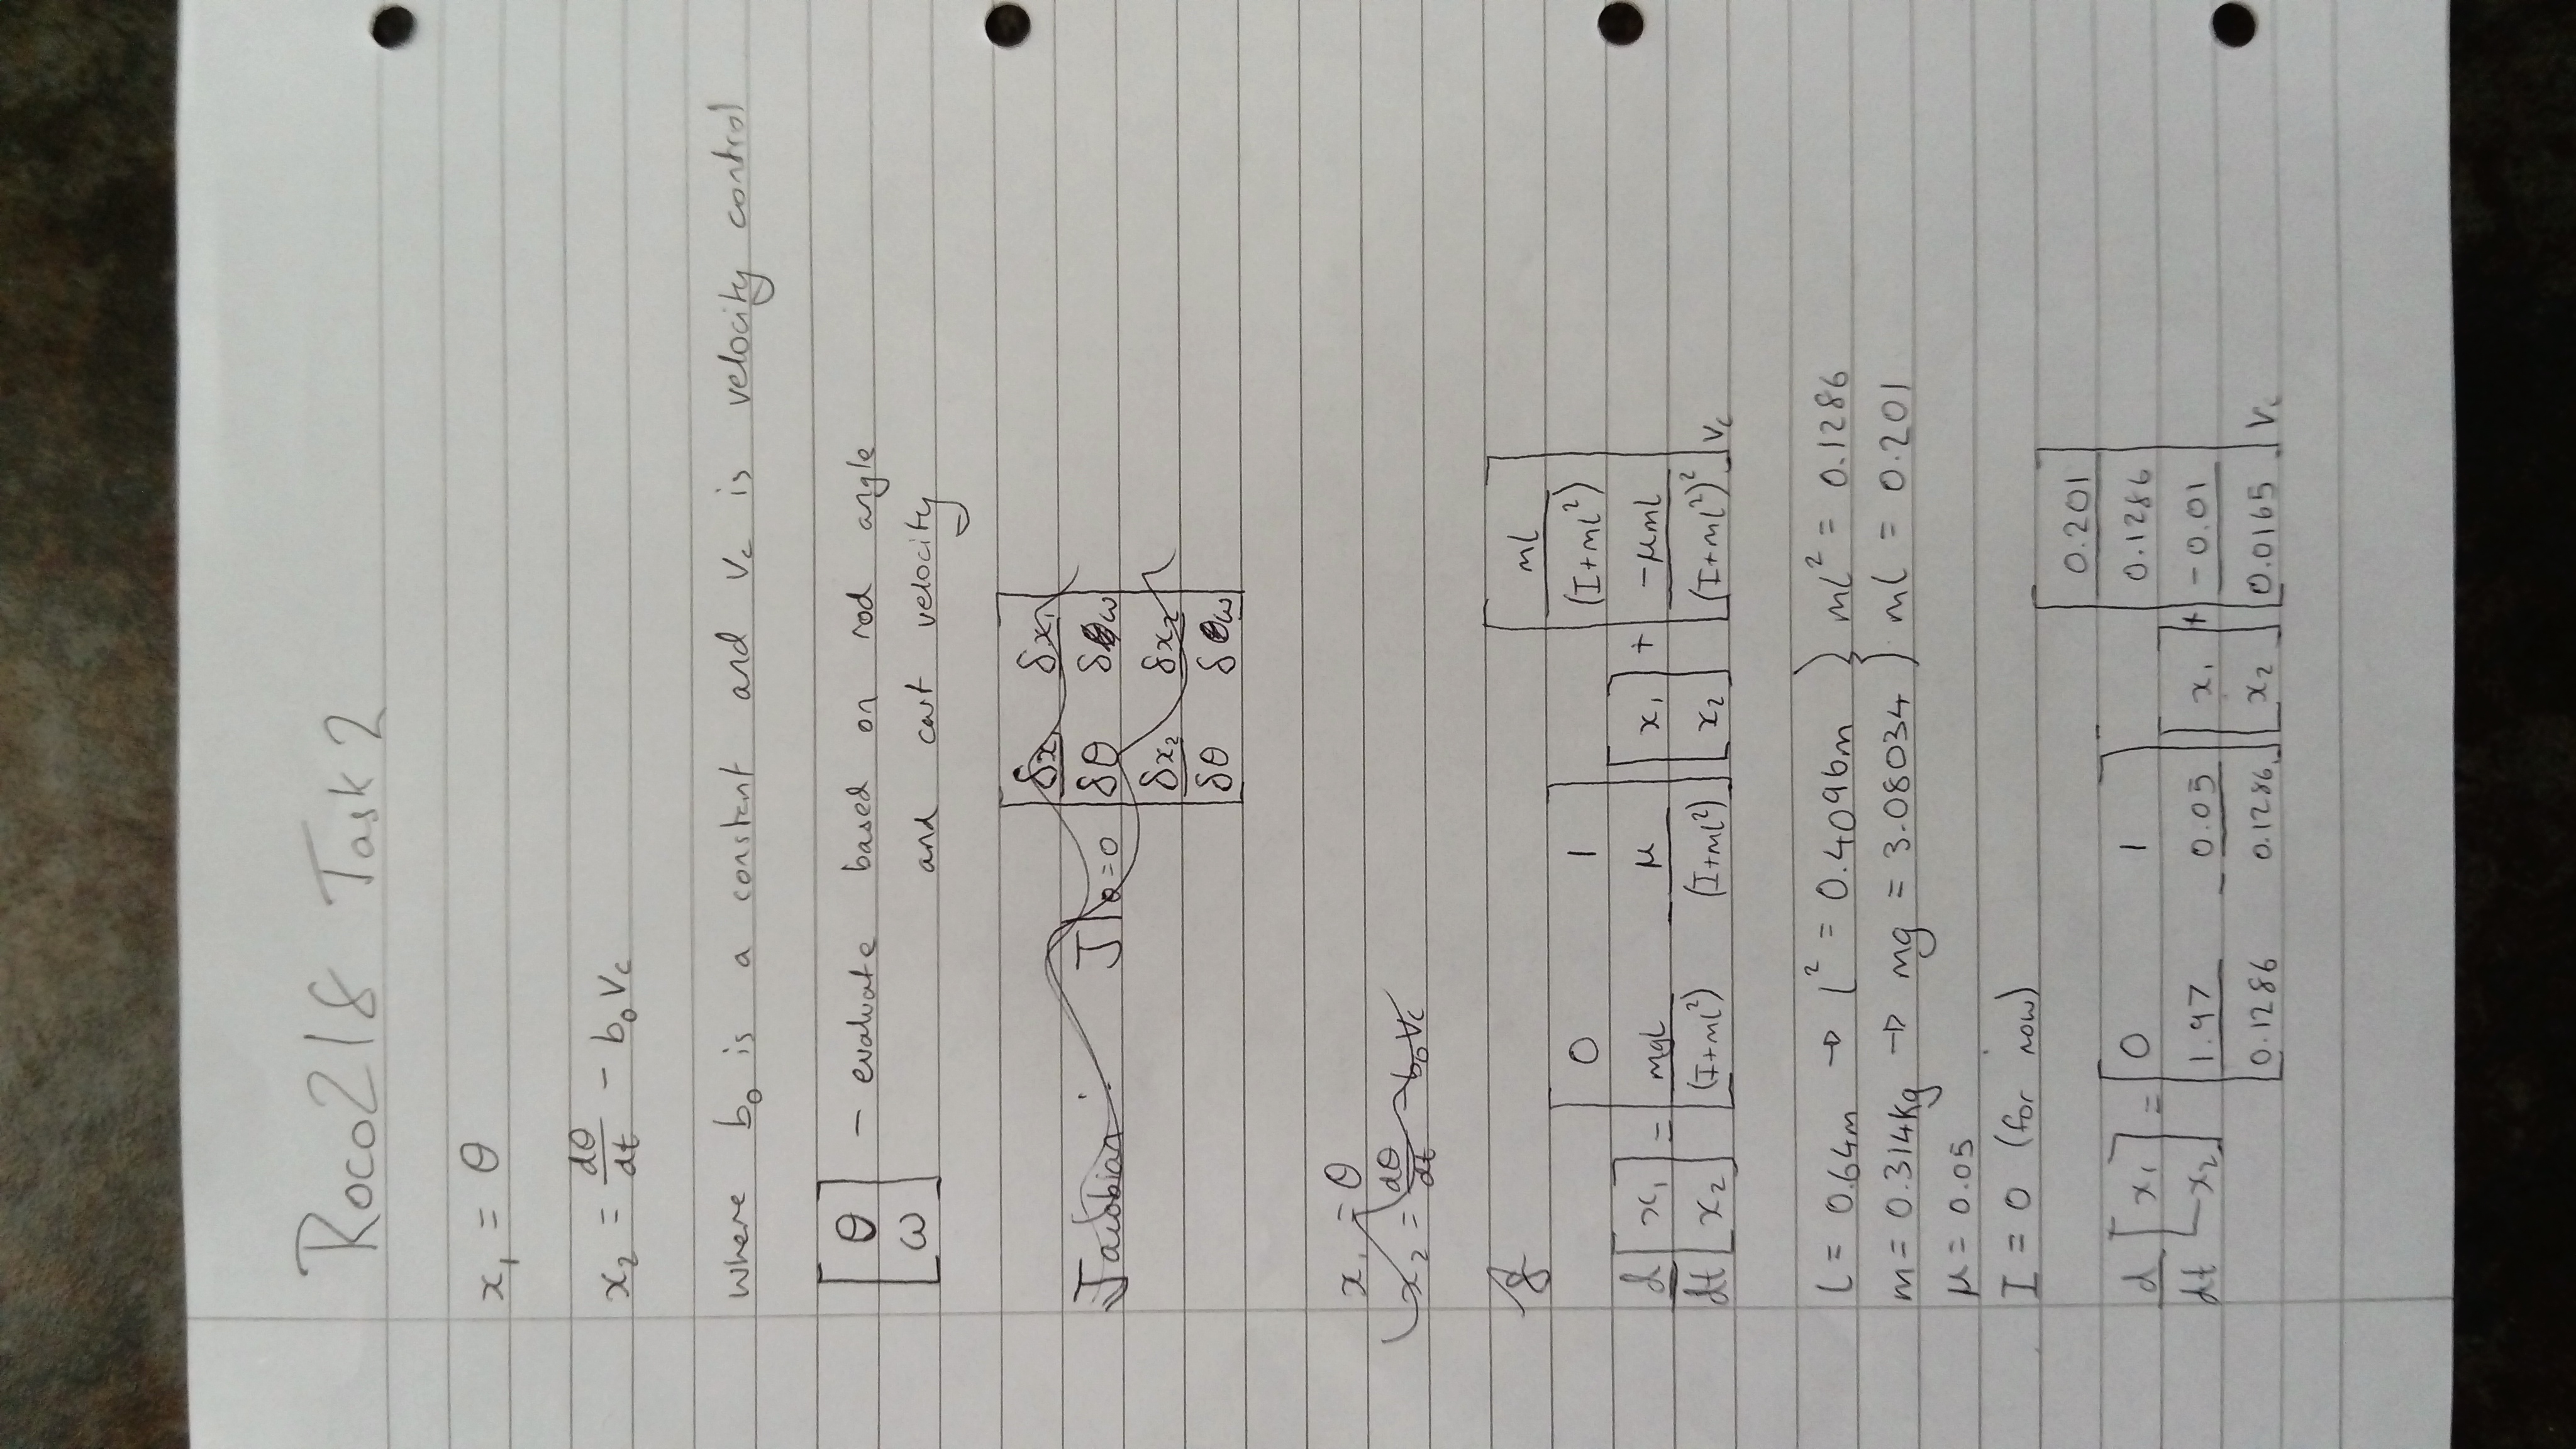 Roco218 Task 2
x₁ = θ
x₂ = dθ/dt - b₀ V_c
where b₀ is a constant and V_c is velocity control
[θ; ω] - evaluate based on rod angle
and cart velocity
Jacobian : J|θ=0 [δx₁/δθ δx₁/δω; δx₂/δθ δx₂/δω]
x₁ = θ
x₂ = dθ/dt - b₀ V_c
d/dt [x₁; x₂] = [0 1; mgl/(I+ml²) -μ/(I+ml²)] [x₁; x₂] + [ml/(I+ml²); -μml/(I+ml²)²] V_c
l = 0.64m → l² = 0.4096m } ml² = 0.1286
m = 0.314kg → mg = 3.08034 } ml = 0.201
μ = 0.05
I = 0 (for now)
d/dt [x₁; x₂] = [0 1; 1.97/0.1286 -0.05/0.1286] [x₁; x₂] + [0.201/0.1286; -0.01/0.0165] V_c